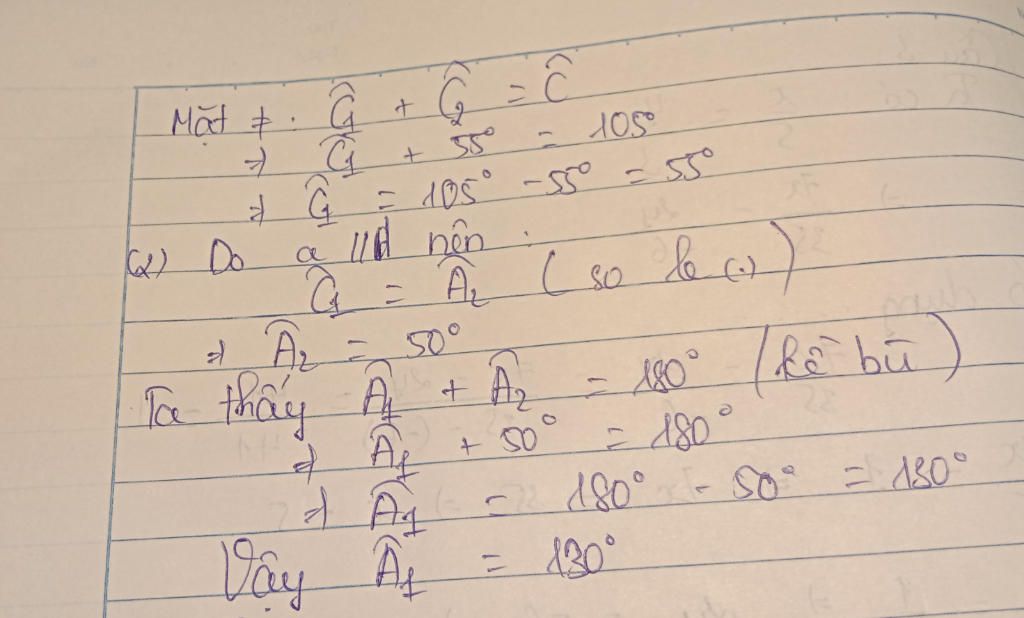 Mặt ≠. Ĉ₁ + Ĉ₂ = Ĉ
⇒ Ĉ₁ + 55° = 105°
⇒ Ĉ₁ = 105° - 55° = 55°
(2) Do a // d nên :
Ĉ₁ = Â₂ ( so le (.) )
⇒ Â₂ = 50°
Ta thấy Â₁ + Â₂ = 180° ( kề bù )
⇒ Â₁ + 50° = 180°
⇒ Â₁ = 180° - 50° = 130°
Vậy Â₁ = 130°